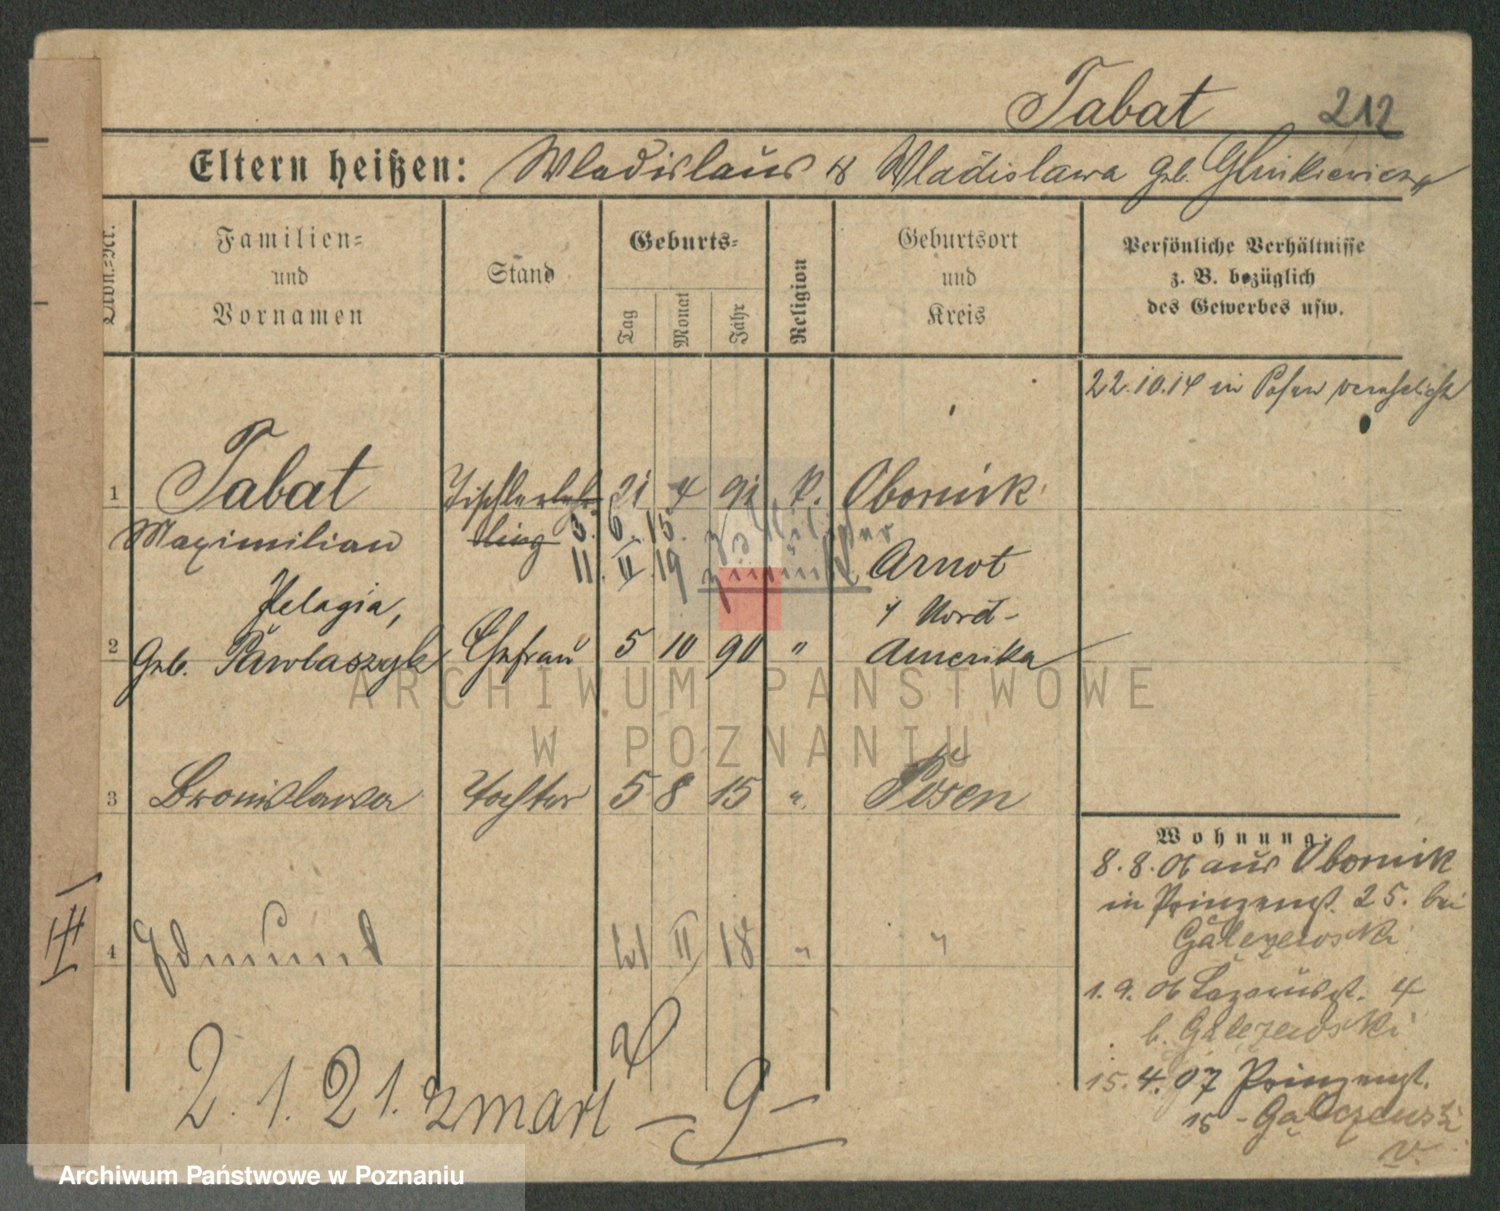 Tabat 212
Eltern heißen: Wladislaus & Wladislawa geb. Glinkiewicz
Familien= und Vornamen
Stand
Geburts=
Tag
Monat
Jahr
Religion
Geburtsort und Kreis
Persönliche Verhältnisse
z. B. bezüglich
des Gewerbes usw.
22.10.14 in Posen verehelicht
1 Tabat Tischlerlehr- 21 4 91 k. Obornik
Maximilian ling 3. 6. 15. zu Militär
11. II. 19 zurück Arnot
Pelagia, Nord-
2 geb. Pawlaszyk Ehefrau 5 10 90 " Amerika
3 Bronislawa Tochter 5 8 15 " Posen
Wohnung:
8.8.06 aus Obornik
in Prinzenst. 25. bei
Galezewski
4 Edmund II 18 " "
1.9.06 Lazarusst. 4
b. Galezewski
15.4.07 Prinzenst.
15 - Galezewski
v.
III
2.1.21. zmarł - 9 -
ARCHIWUM PAŃSTWOWE
W POZNANIU
Archiwum Państwowe w Poznaniu